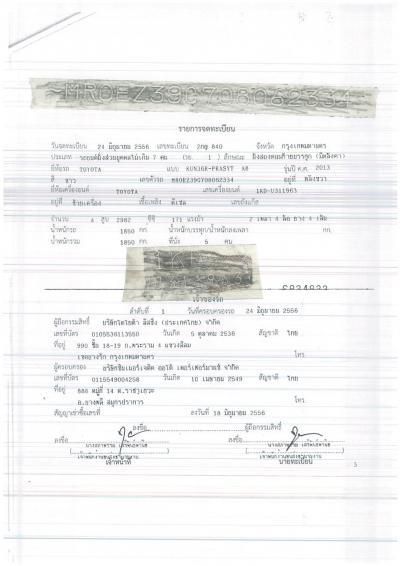 MR0EZ39G708062334
รายการจดทะเบียน
วันจดทะเบียน 24 มิถุนายน 2556 เลขทะเบียน 2กฐ 840 จังหวัด กรุงเทพมหานคร
ประเภท รถยนต์นั่งส่วนบุคคลไม่เกิน 7 คน (รย. 1 ) ลักษณะ นั่งสองตอนท้ายบรรทุก
ยี่ห้อรถ TOYOTA แบบ รุ่นปี ค.ศ. 2013
สี ขาว เลขตัวรถ MR0EZ39G708062334 อยู่ที่
ยี่ห้อเครื่องยนต์ TOYOTA เลขเครื่องยนต์ 1KD-U311963
อยู่ที่ เชื้อเพลิง ดีเซล เลขถังแก๊ส
จำนวน 4 สูบ 2982 ซีซี 171 แรงม้า 2 เพลา 4 ล้อ ยาง 4 เส้น
น้ำหนักรถ 1850 กก. น้ำหนักบรรทุก/น้ำหนักลงเพลา กก.
น้ำหนักรวม 1850 กก. ที่นั่ง 5 คน
เจ้าของรถ
ลำดับที่ 1 วันที่ครอบครองรถ 24 มิถุนายน 2556
ผู้ถือกรรมสิทธิ์ บริษัทโตโยต้า ลีสซิ่ง (ประเทศไทย) จำกัด
เลขที่บัตร 0105536113550 วันเกิด 5 ตุลาคม 2536 สัญชาติ ไทย
ที่อยู่ 990 ชั้น 18-19 ถ.พระราม 4 แขวงสีลม
เขตบางรัก กรุงเทพมหานคร โทร.
ผู้ครอบครอง
เลขที่บัตร 0115549004258 วันเกิด 10 เมษายน 2549 สัญชาติ ไทย
ที่อยู่ 888 หมู่ที่ 14 ต.ราชาเทวะ
อ.บางพลี สมุทรปราการ โทร.
สัญญาเช่าซื้อเลขที่ ลงวันที่ 18 มิถุนายน 2556
ลงชื่อ ผู้ถือกรรมสิทธิ์
ลงชื่อ ลงชื่อ
เจ้าหน้าที่ นายทะเบียน